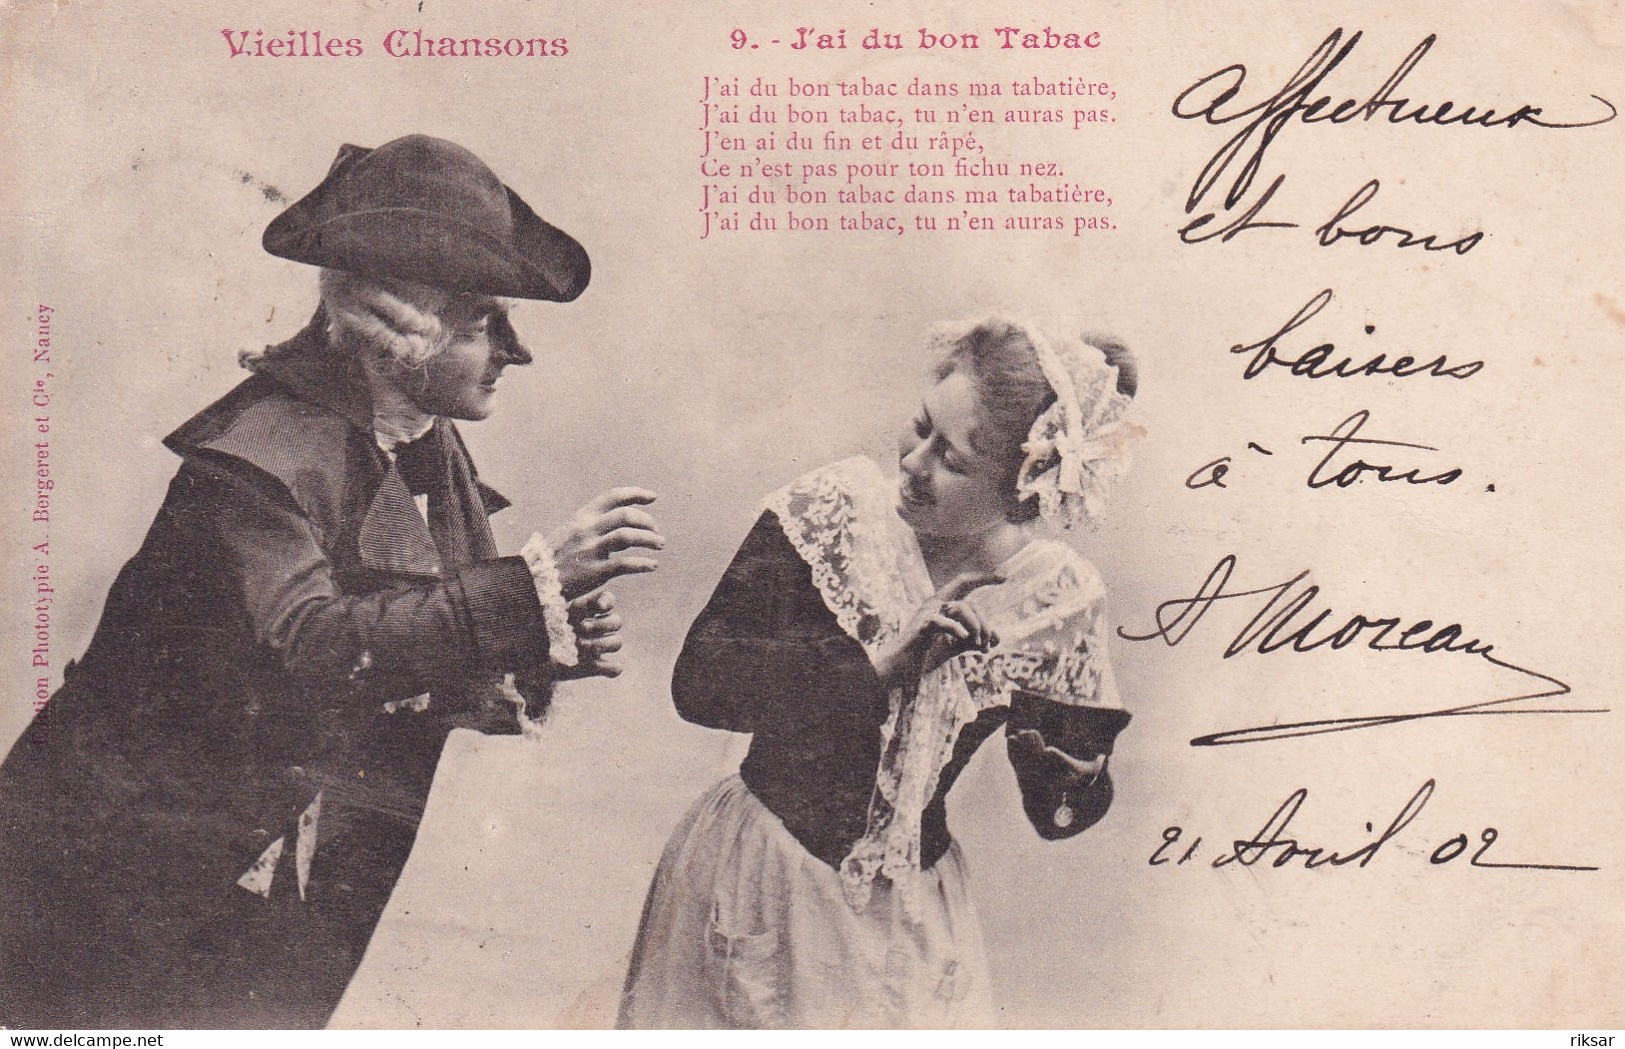 Vieilles Chansons
9. - J'ai du bon Tabac
J'ai du bon tabac dans ma tabatière,
J'ai du bon tabac, tu n'en auras pas.
J'en ai du fin et du râpé,
Ce n'est pas pour ton fichu nez.
J'ai du bon tabac dans ma tabatière,
J'ai du bon tabac, tu n'en auras pas.
Affectueux
et bons
baisers
à tous.
A Moreau
21 Avril 02
Edition Phototypie A. Bergeret et Cie, Nancy
delcampe.net
riksar